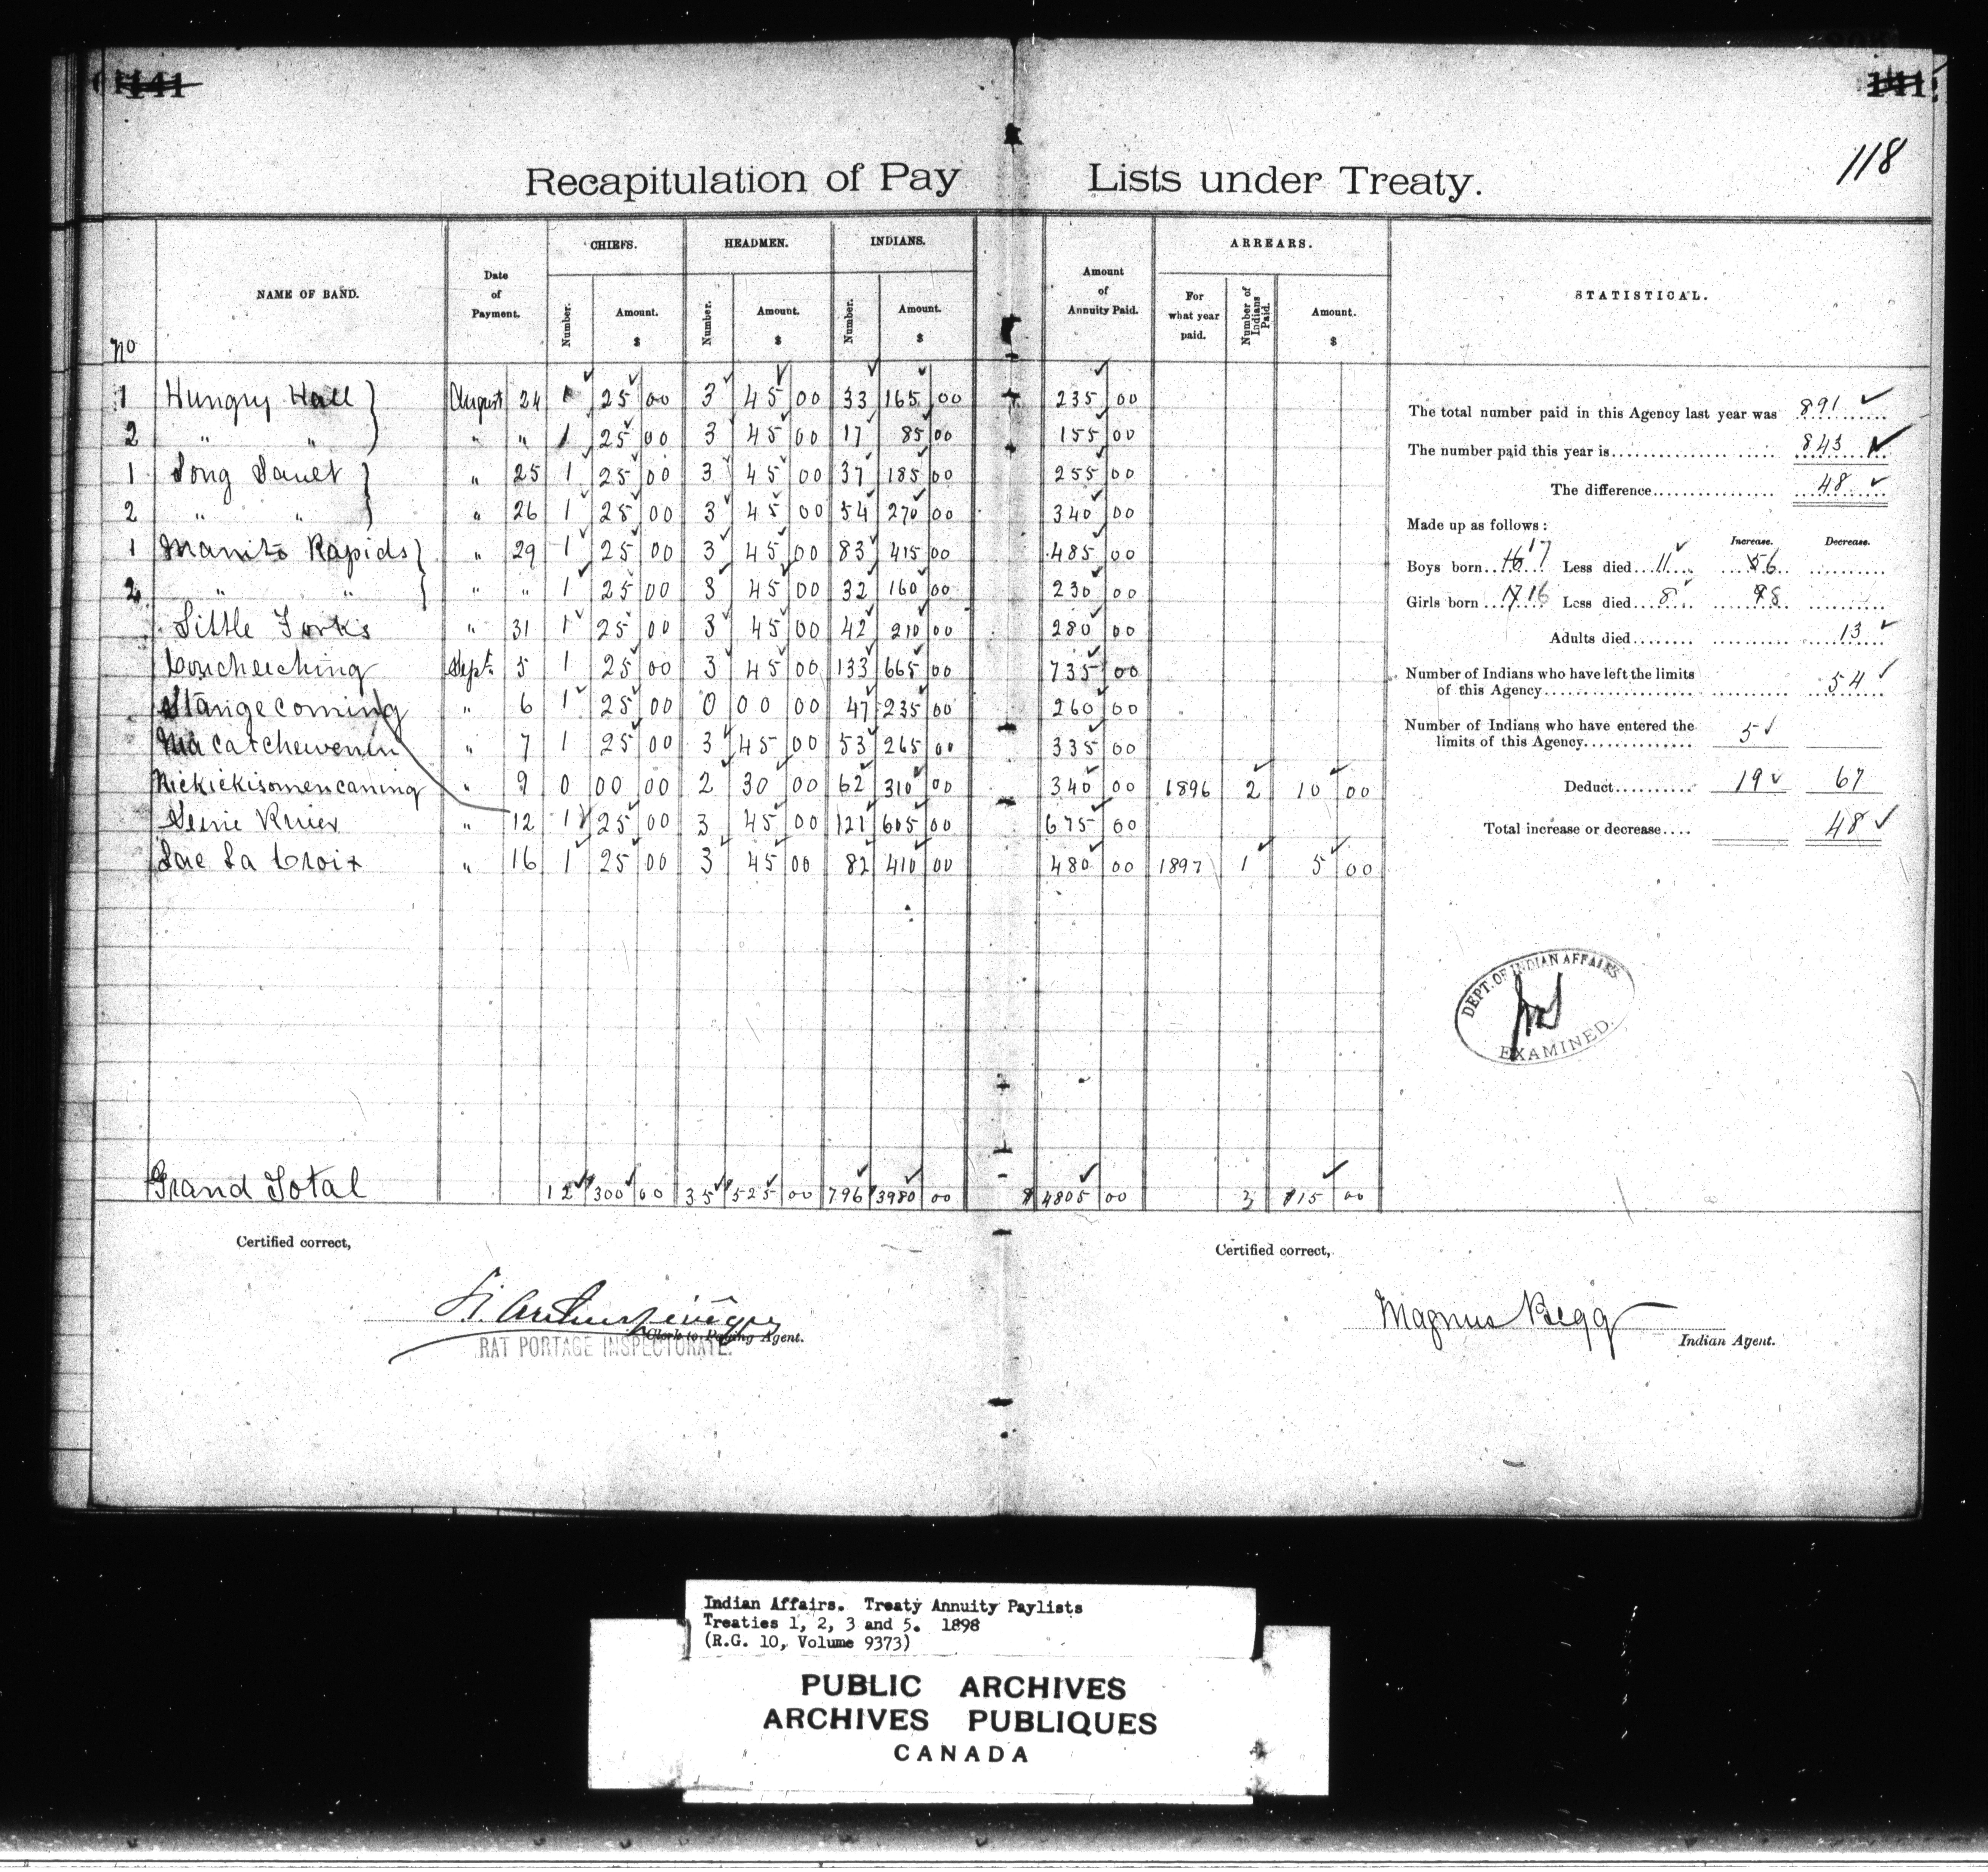 141 141
118
Recapitulation of Pay Lists under Treaty.
No NAME OF BAND. Date of Payment. CHIEFS. Number. Amount. $ HEADMEN. Number. Amount. $ INDIANS. Number. Amount. $ Amount of Annuity Paid. ARREARS. For what year paid. Number of Indians Paid. Amount. $ STATISTICAL.
1 Hungry Hall August 24 1 25 00 3 45 00 33 165 00 235 00
2 " " " " 1 25 00 3 45 00 17 85 00 155 00
1 Long Sault " 25 1 25 00 3 45 00 37 185 00 255 00
2 " " " 26 1 25 00 3 45 00 54 270 00 340 00
1 Manito Rapids " 29 1 25 00 3 45 00 83 415 00 485 00
2 " " " " 1 25 00 3 45 00 32 160 00 230 00
Little Forks " 31 1 25 00 3 45 00 42 210 00 280 00
Coucheeching Sept. 5 1 25 00 3 45 00 133 665 00 735 00
Stangecoming " 6 1 25 00 0 00 00 47 235 00 260 00
Macatchewenin " 7 1 25 00 3 45 00 53 265 00 335 00
Nickickisomencaning " 9 0 00 00 2 30 00 62 310 00 340 00 1896 2 10 00
Seine River " 12 1 25 00 3 45 00 121 605 00 675 00
Lac La Croix " 16 1 25 00 3 45 00 82 410 00 480 00 1897 1 5 00
Grand Total 12 300 00 35 525 00 796 3980 00 $ 4805 00 3 $15 00
The total number paid in this Agency last year was 891
The number paid this year is 843
The difference 48
Made up as follows:
Increase. Decrease.
Boys born 16 17 Less died 11 5 6
Girls born 17 16 Less died 8 9 8
Adults died 13
Number of Indians who have left the limits
of this Agency 54
Number of Indians who have entered the
limits of this Agency 5
Deduct 19 67
Total increase or decrease 48
DEPT. OF INDIAN AFFAIRS
EXAMINED.
Certified correct,
Clerk to Paying Agent.
RAT PORTAGE INSPECTORATE.
Certified correct,
Magnus Begg
Indian Agent.
Indian Affairs. Treaty Annuity Paylists
Treaties 1, 2, 3 and 5. 1898
(R.G. 10, Volume 9373)
PUBLIC ARCHIVES
ARCHIVES PUBLIQUES
CANADA